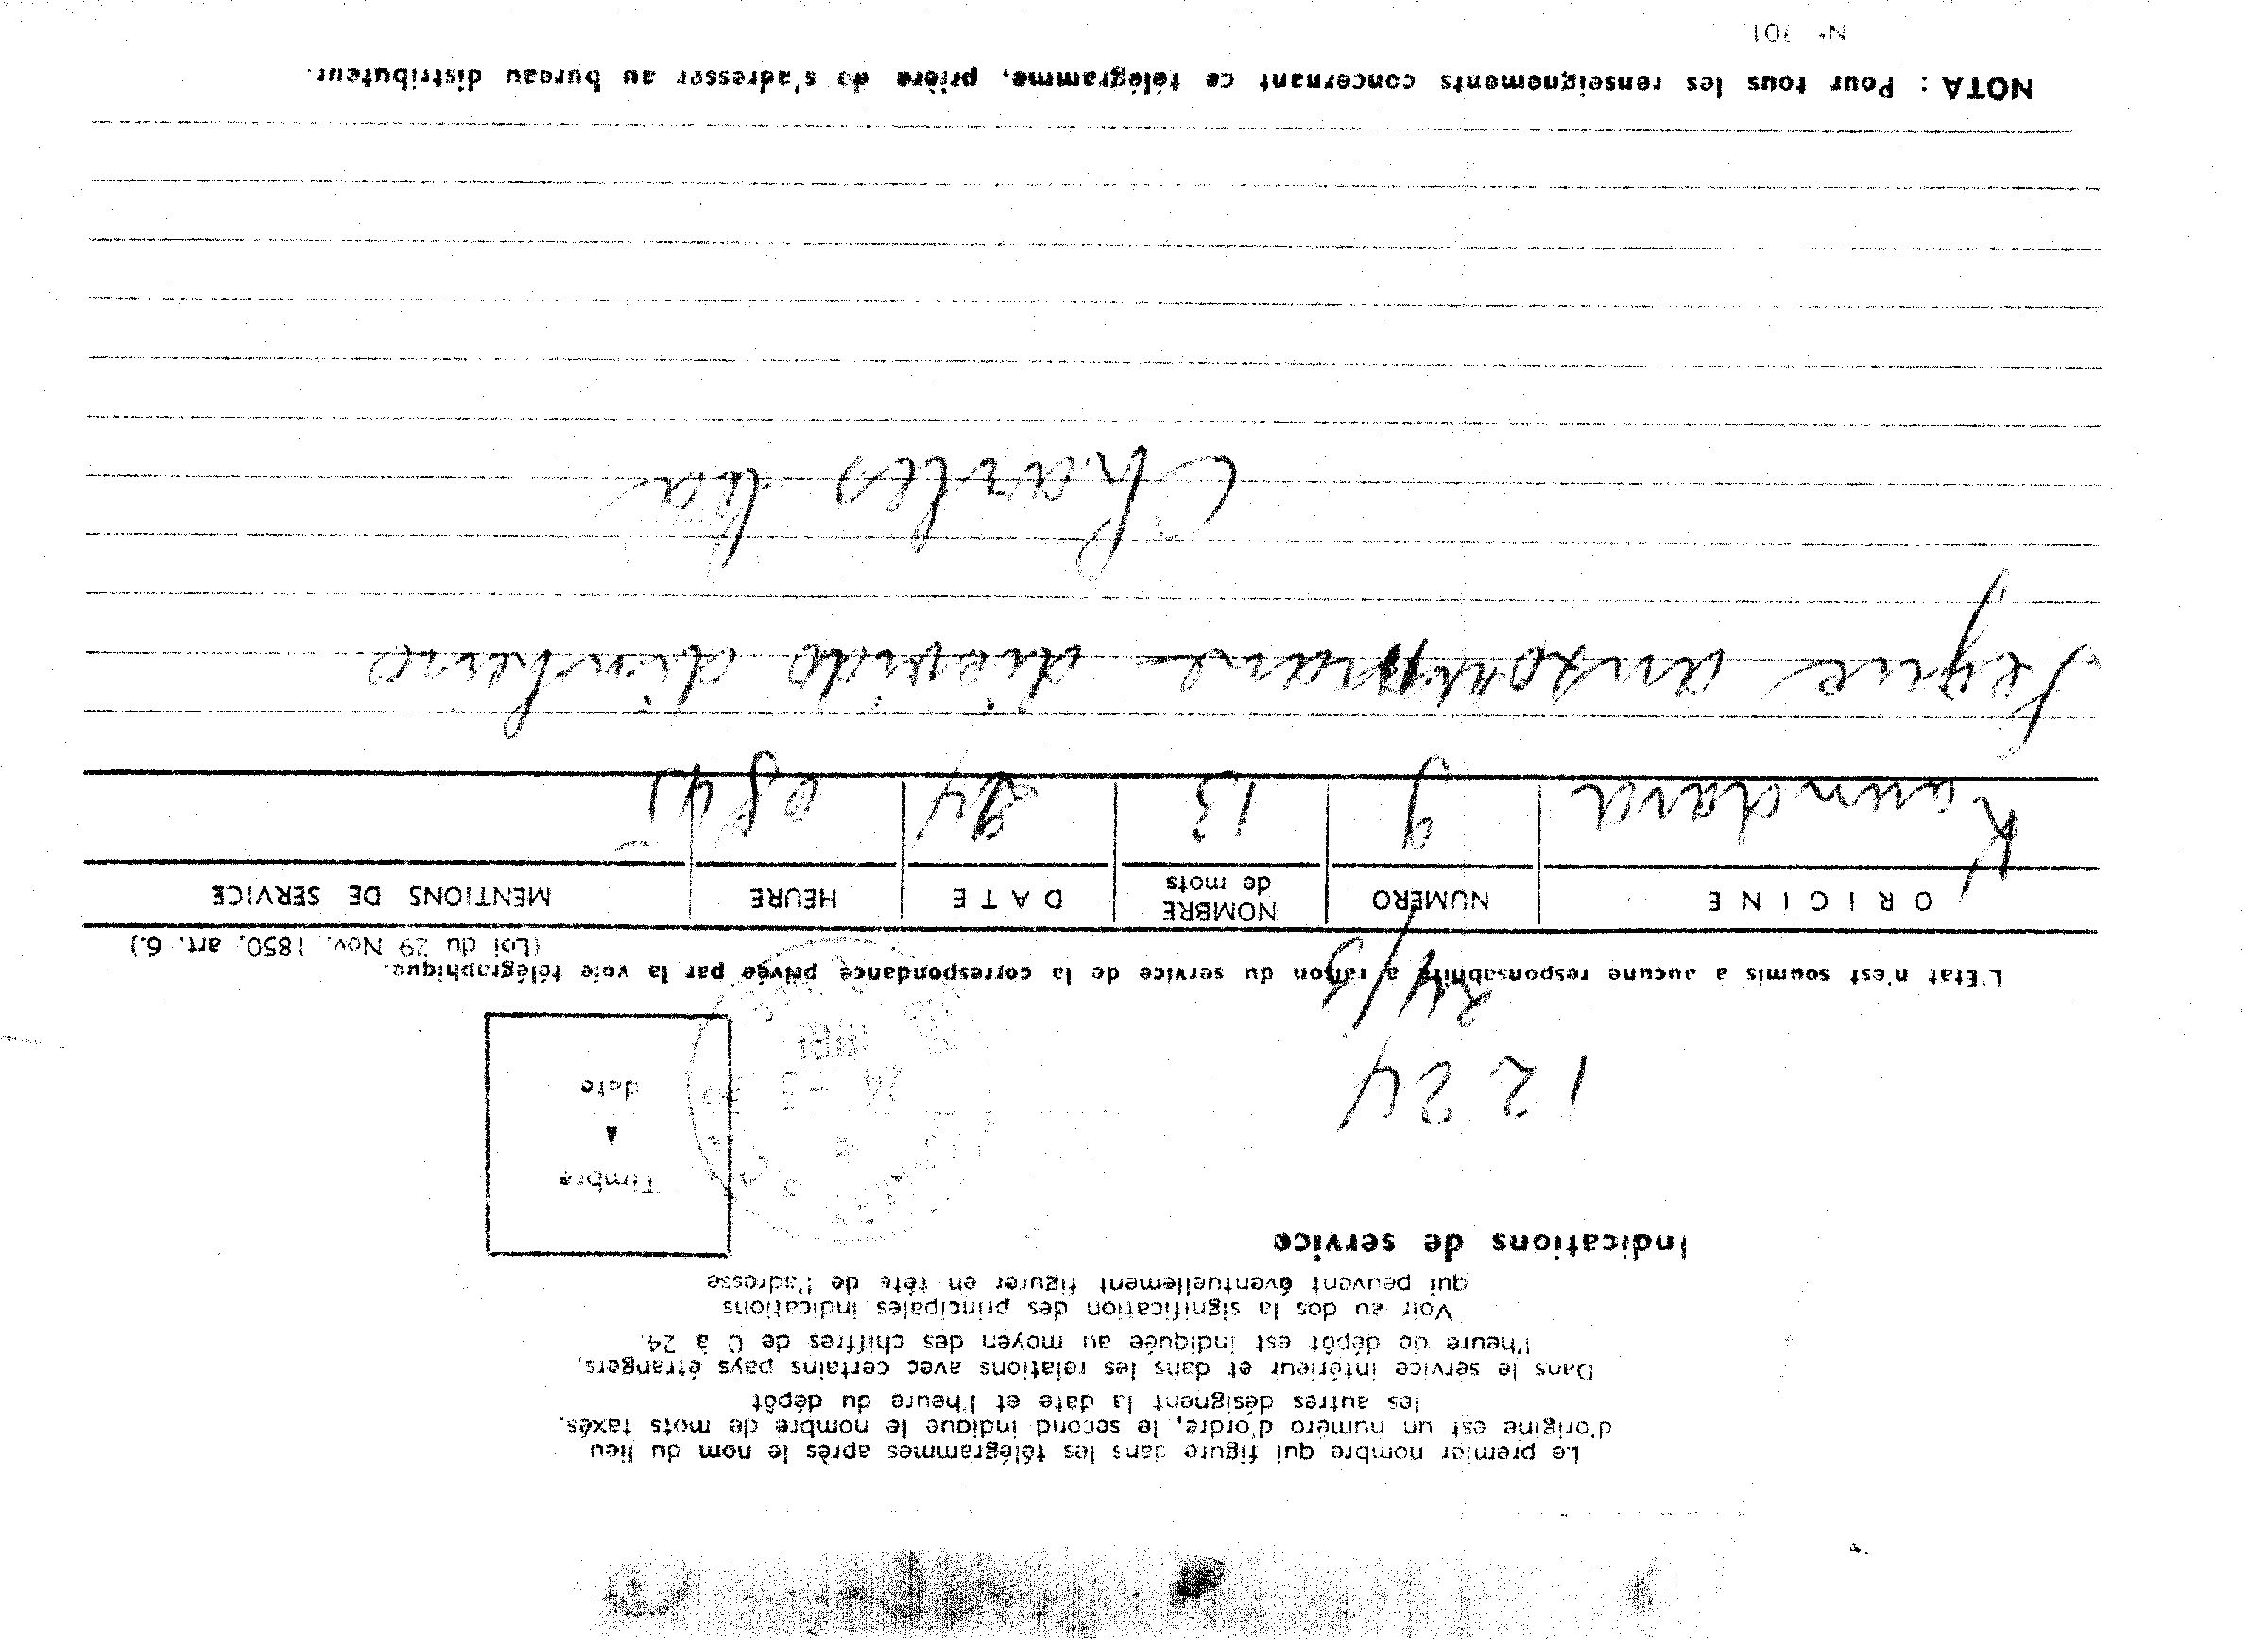 Le premier nombre qui figure dans les télégrammes après le nom du lieu
d'origine est un numéro d'ordre, le second indique le nombre de mots taxés,
les autres désignent la date et l'heure du dépôt
Dans le service intérieur et dans les relations avec certains pays étrangers,
l'heure de dépôt est indiquée au moyen des chiffres de 0 à 24.
Voir au dos la signification des principales indications
qui peuvent éventuellement figurer en tête de l'adresse
Indications de service
Timbre
date
1224
24/9
L'Etat n'est soumis a aucune responsabilité a raison du service de la correspondance privée par la voie télégraphique.
(Loi du 29 Nov. 1850, art. 6.)
ORIGINE NUMERO NOMBRE de mots DATE HEURE MENTIONS DE SERVICE
9 13 24
Charles
NOTA : Pour tous les renseignements concernant ce télégramme, prière de s'adresser au bureau distributeur.
N° 701